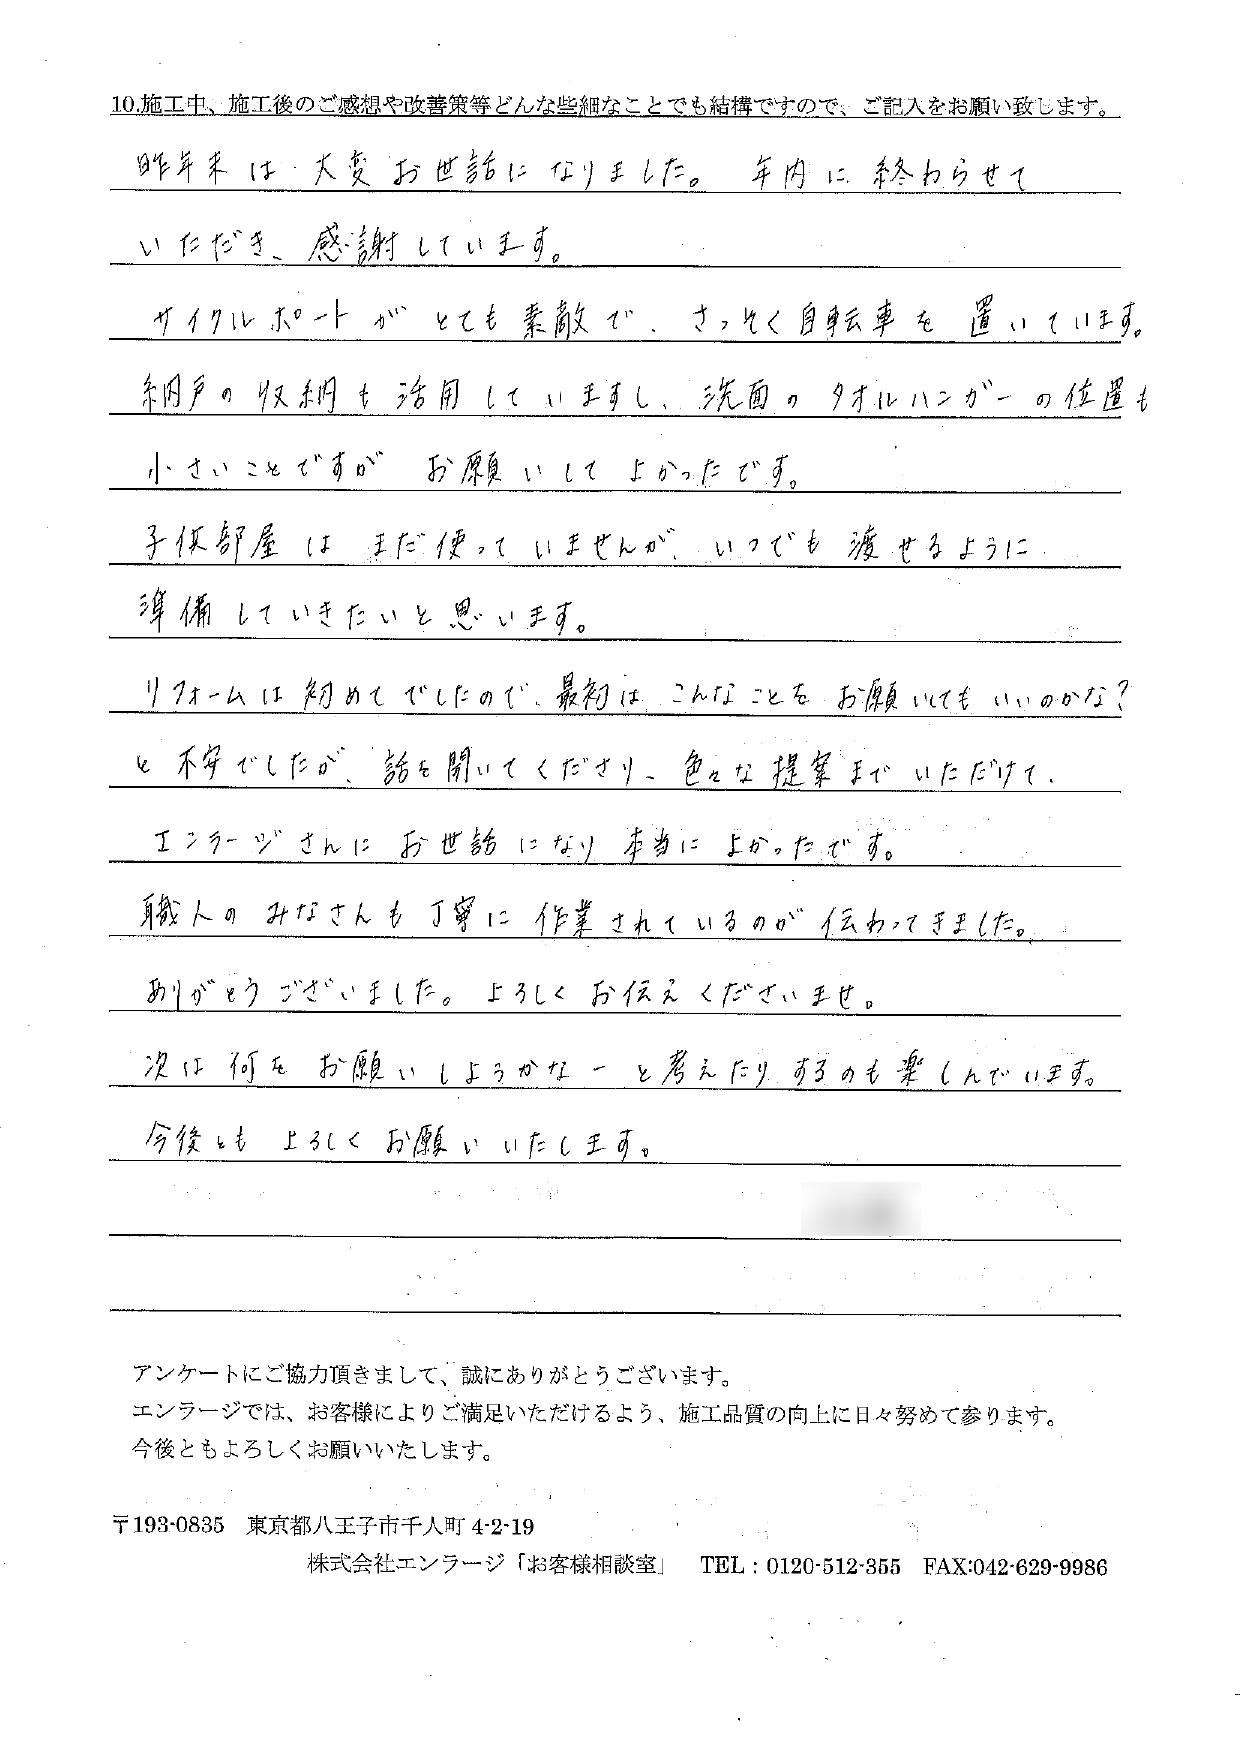 10.施工中、施工後のご感想や改善策等どんな些細なことでも結構ですので、ご記入をお願い致します。
昨年末は大変お世話になりました。 年内に終わらせて
いただき、感謝しています。
サイクルポートがとても素敵で、さっそく自転車を置いています。
納戸の収納も活用していますし、洗面のタオルハンガーの位置も
小さいことですがお願いしてよかったです。
子供部屋はまだ使っていませんが、いつでも渡せるように
準備していきたいと思います。
リフォームは初めてでしたので、最初はこんなことをお願いしてもいいのかな?
と不安でしたが、話を聞いてくださり、色々な提案までいただけて、
エンラージさんにお世話になり本当によかったです。
職人のみなさんも丁寧に作業されているのが伝わってきました。
ありがとうございました。よろしくお伝えくださいませ。
次は何をお願いしようかなーと考えたりするのも楽しんでいます。
今後ともよろしくお願いいたします。
アンケートにご協力頂きまして、誠にありがとうございます。
エンラージでは、お客様によりご満足いただけるよう、施工品質の向上に日々努めて参ります。
今後ともよろしくお願いいたします。
〒193-0835 東京都八王子市千人町 4-2-19
株式会社エンラージ「お客様相談室」 TEL:0120-512-355 FAX:042-629-9986